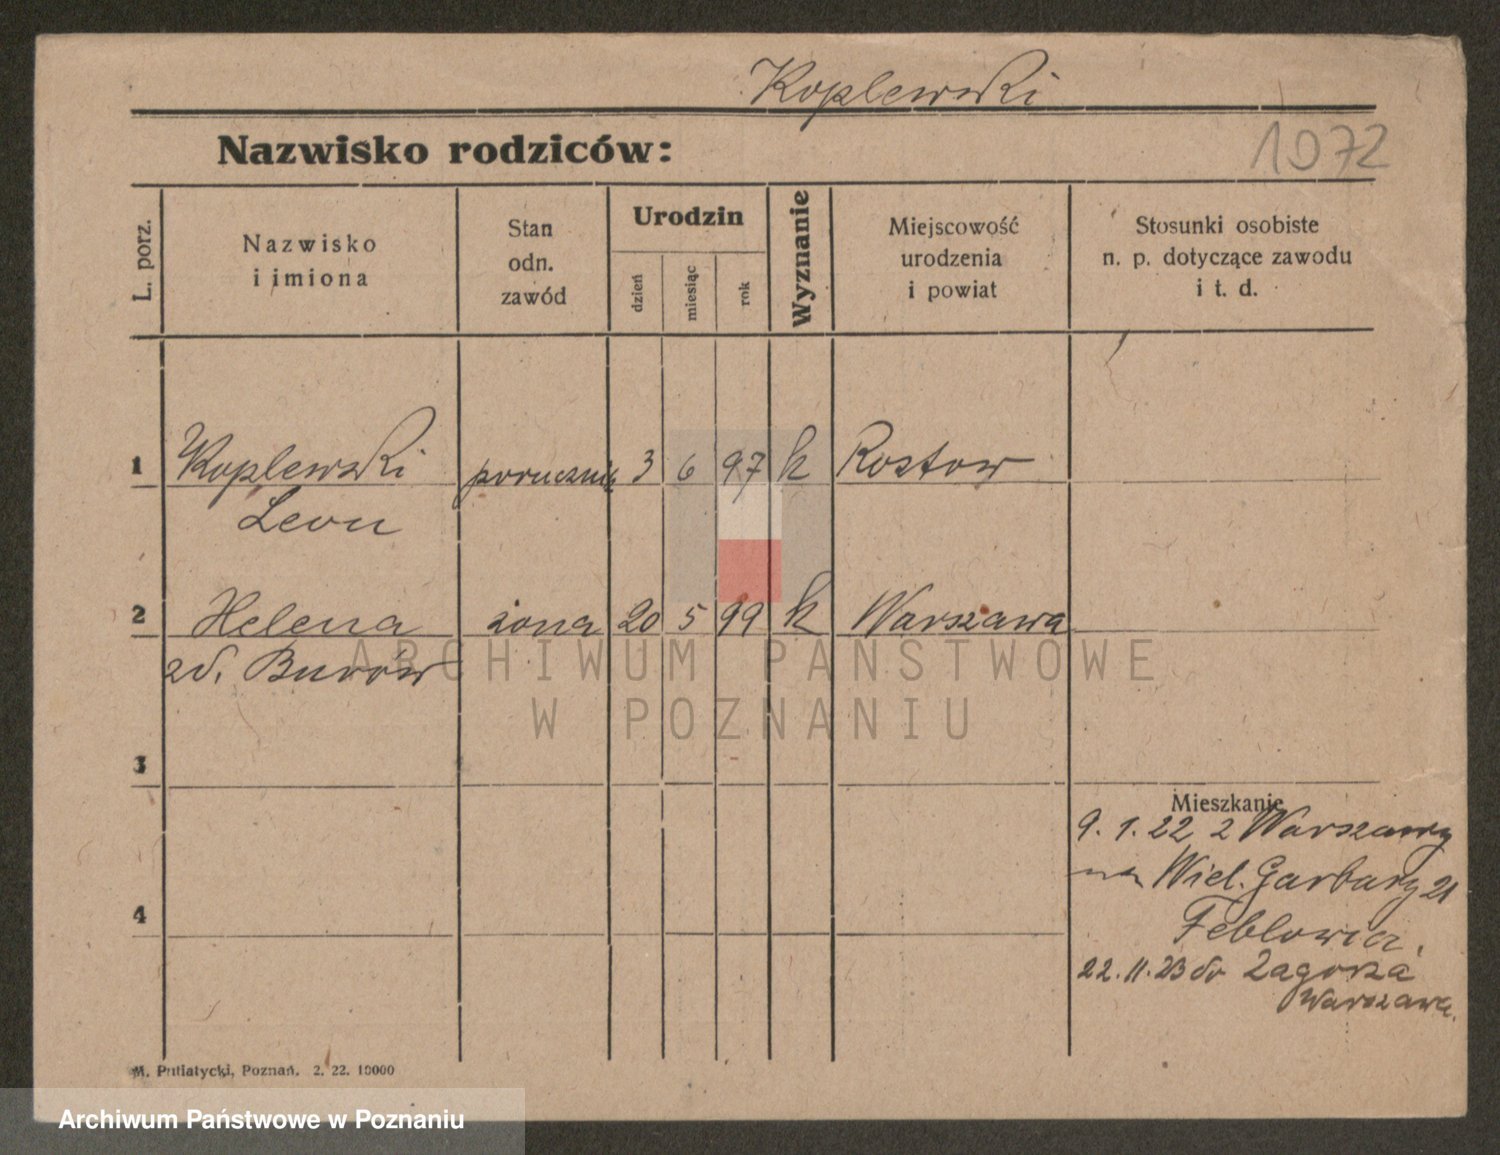 Koplewski
Nazwisko rodziców:
1072
L. porz.
Nazwisko
i imiona
Stan
odn.
zawód
Urodzin
dzień
miesiąc
rok
Wyznanie
Miejscowość
urodzenia
i powiat
Stosunki osobiste
n. p. dotyczące zawodu
i t. d.
1 Koplewski porucznik 3 6 97 k Rostow
Leon
2 Helena żona 20 5 99 k Warszawa
zd. Burów
3
Mieszkanie
9. 1. 22 z Warszawy
na Wiel. Garbary 21
4
22. 11. 23 do Zagórza
Warszawa.
M. Putiatycki, Poznań. 2. 22. 10000
ARCHIWUM PAŃSTWOWE
W POZNANIU
Archiwum Państwowe w Poznaniu